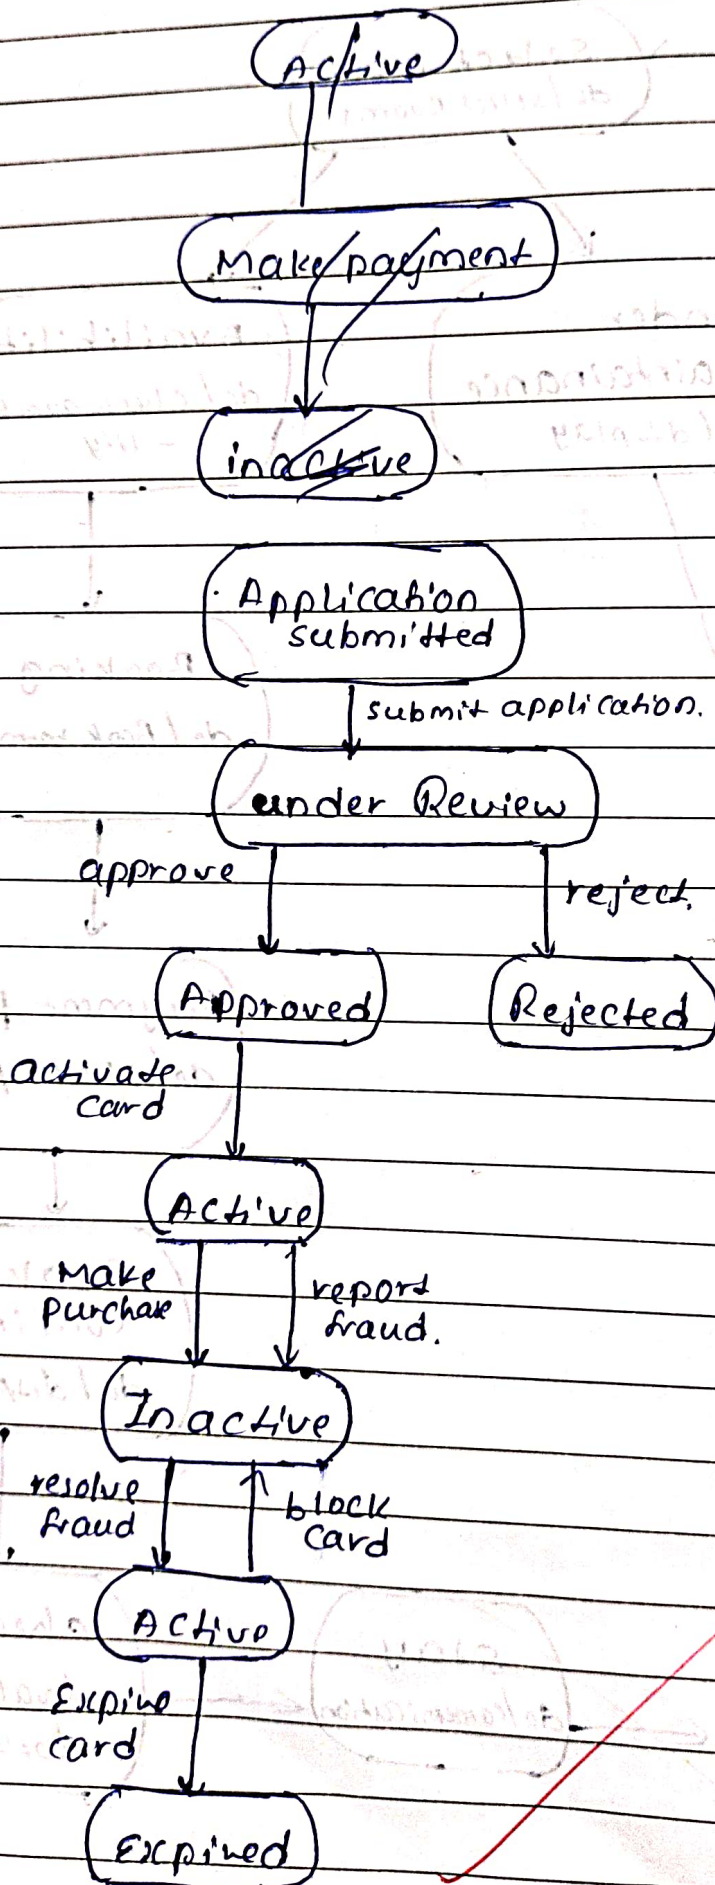 Active
Make payment
inactive
Application
submitted
submit application.
under Review
approve
reject.
Approved
Rejected
activate
card
Active
Make
purchase
report
fraud.
Inactive
resolve
fraud
block
card
Active
Expire
card
Expired